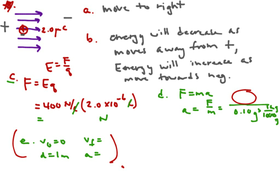 a. move to right
+ + 2.0 µC -
b. energy will decrease as
moves away from +,
Energy will increase as
move towards neg.
E = F/q
c. F = Eq
= 400 N/c (2.0 x10⁻⁶ c)
= N
d. F = ma
a = F/m = / 0.10 g · 1kg/1000g
(e. v₀ = 0 vf =
d = 1m a = )